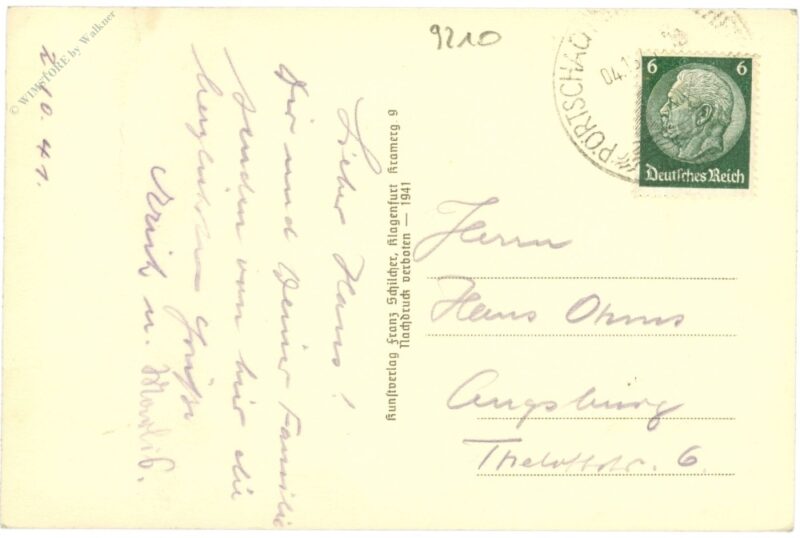 © WIMSTORE by Walkner
2.10.41.
Lieber Hans!
Dir und Deiner Familie
senden von hier die
herzlichsten Grüße
u.
9210
PÖRTSCHACH
04.1
6 6
Deutsches Reich
Kunstverlag Franz Schilcher, Klagenfurt Kramerg. 9
Nachdruck verboten — 1941
Herrn
Hans Ohms
Augsburg
Thelottstr. 6.